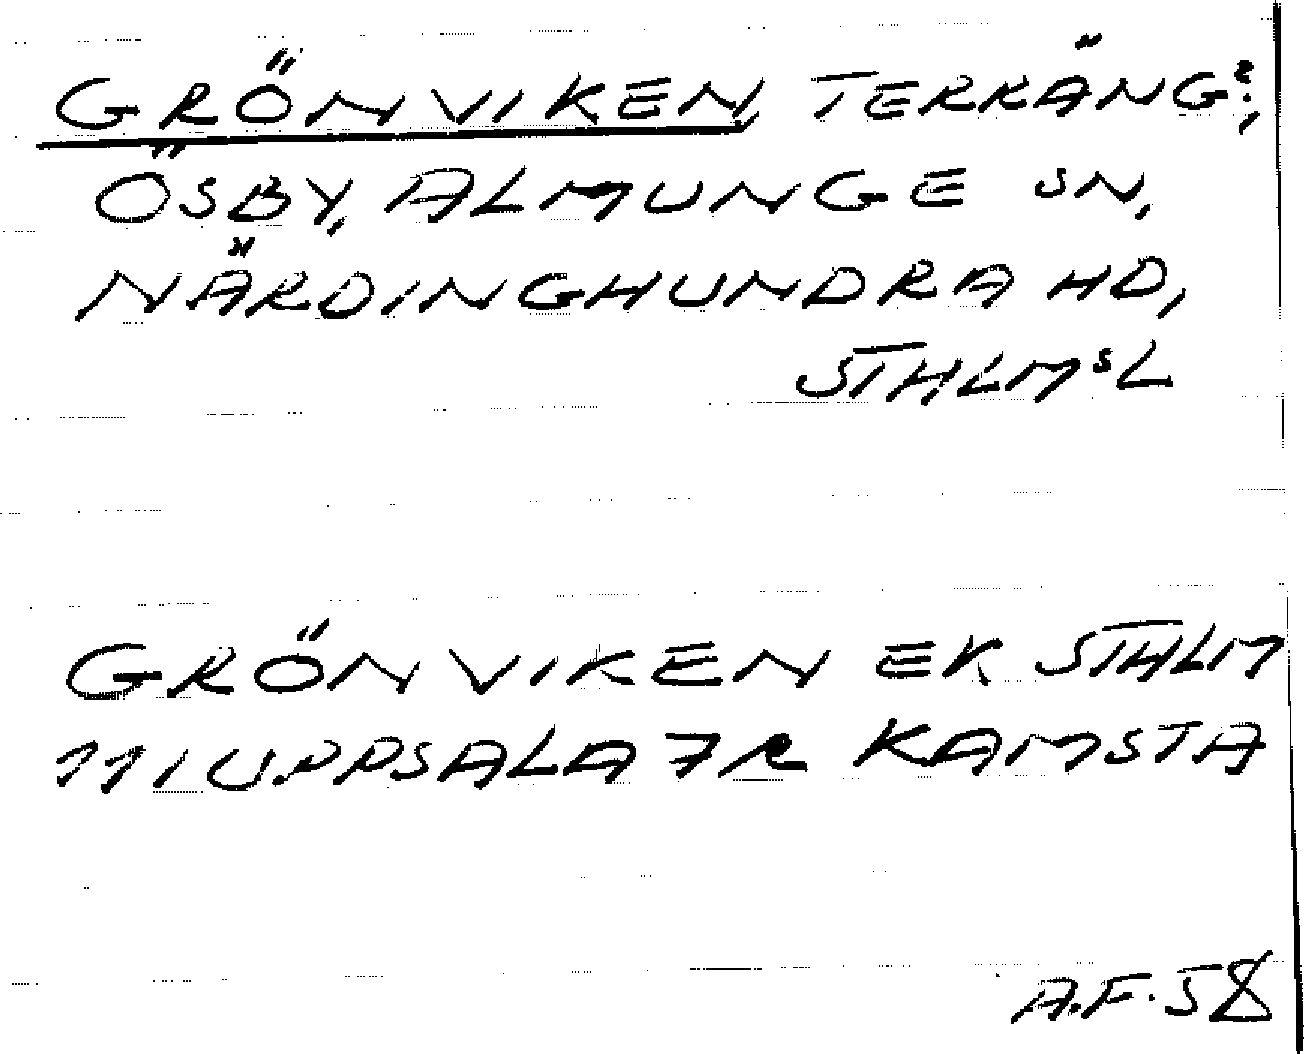 GRÖNVIKEN, TERRÄNG?,
ÖSBY, ALMUNGE SN,
NÄRDINGHUNDRA HD,
STHLMSL
GRÖNVIKEN EK STHLM
111 UPPSALA 7R KAMSTA
A.F. 58